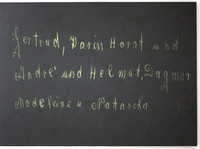 Gertrud, Karin Horst und
André und Helmut, Dagmar
Madeleine u. Natascha